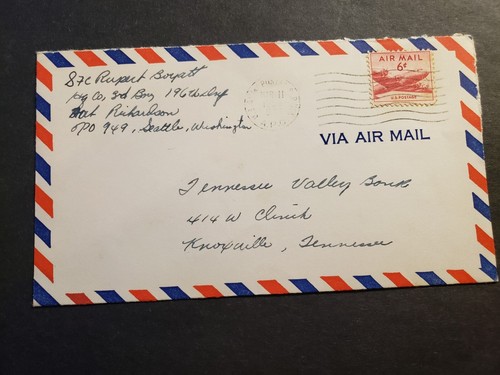 Sfc Rupert Boyatt
Hq Co, 3rd Bn, 196th Inf
Fort Richardson
APO 949, Seattle, Washington
AIR MAIL
6¢
U.S. POSTAGE
VIA AIR MAIL
Tennessee Valley Bank
414 W Clinch
Knoxville, Tennessee